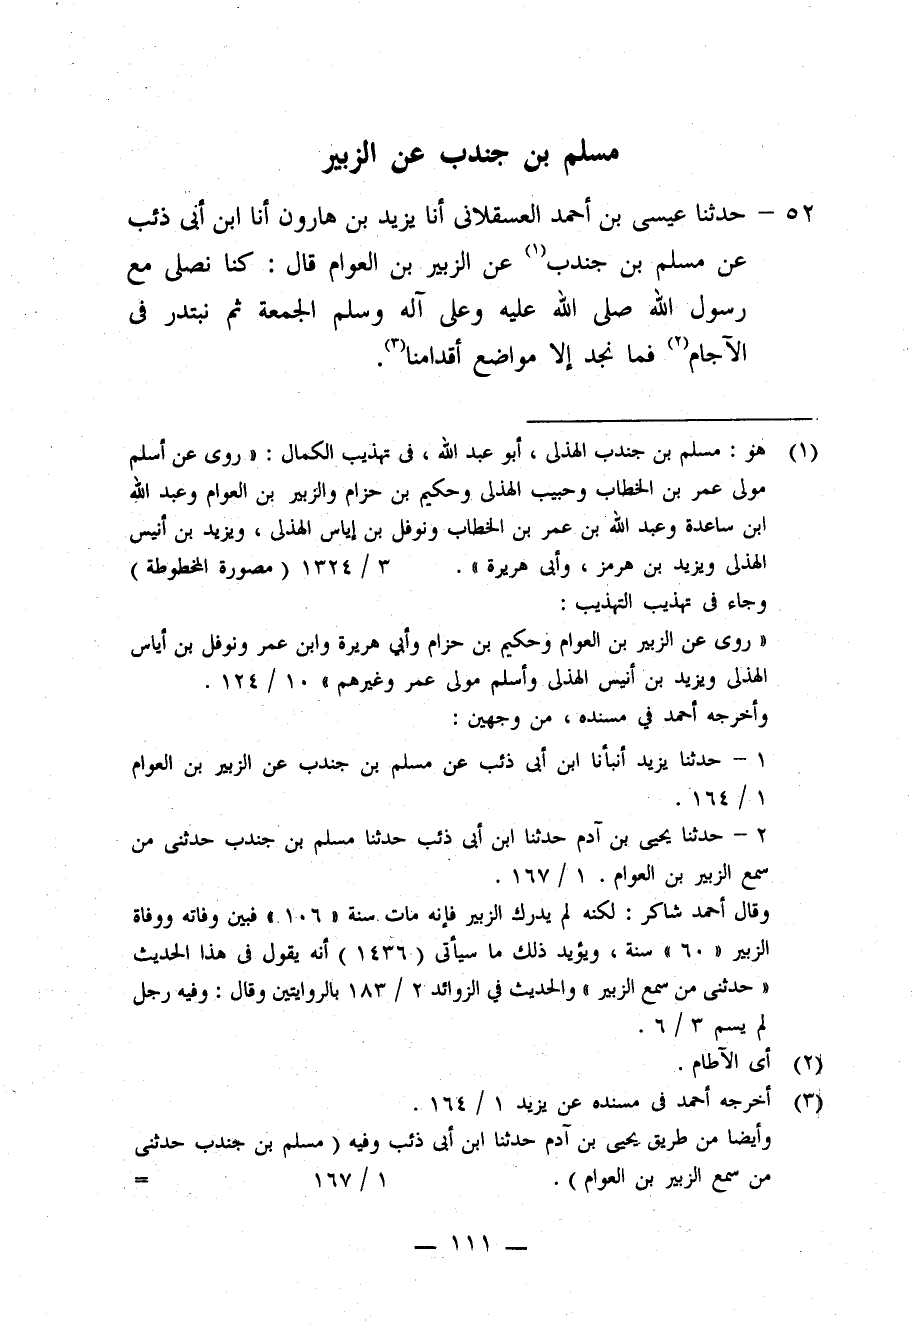 مسلم بن جندب عن الزبير
٥٢ – حدثنا عيسى بن أحمد العسقلانى أنا يزيد بن هارون أنا ابن أبى ذئب
عن مسلم بن جندب(١) عن الزبير بن العوام قال : كنا نصلى مع
رسول الله صلى الله عليه وعلى آله وسلم الجمعة ثم نبتدر فى
الآجام(٢) فما نجد إلا مواضع أقدامنا(٣).
(١) هو : مسلم بن جندب الهذلى ، أبو عبد الله ، فى تهذيب الكمال : « روى عن أسلم
مولى عمر بن الخطاب وحبيب الهذلى وحكيم بن حزام والزبير بن العوام وعبد الله
ابن ساعدة وعبد الله بن عمر بن الخطاب ونوفل بن إياس الهذلى ، ويزيد بن أنيس
الهذلى ويزيد بن هرمز ، وأبى هريرة » . ٣ / ١٣٢٤ ( مصورة المخطوطة )
وجاء فى تهذيب التهذيب :
« روى عن الزبير بن العوام وحكيم بن حزام وأبي هريرة وابن عمر ونوفل بن أياس
الهذلى ويزيد بن أنيس الهذلى وأسلم مولى عمر وغيرهم » ١٠ / ١٢٤ .
وأخرجه أحمد في مسنده ، من وجهين :
١ – حدثنا يزيد أنبأنا ابن أبى ذئب عن مسلم بن جندب عن الزبير بن العوام
١ / ١٦٤ .
٢ – حدثنا يحيى بن آدم حدثنا ابن أبى ذئب حدثنا مسلم بن جندب حدثنى من
سمع الزبير بن العوام . ١ / ١٦٧ .
وقال أحمد شاكر : لكنه لم يدرك الزبير فإنه مات سنة « ١٠٦ » فبين وفاته ووفاة
الزبير « ٦٠ » سنة ، ويؤيد ذلك ما سيأتى ( ١٤٣٦ ) أنه يقول فى هذا الحديث
« حدثنى من سمع الزبير » والحديث في الزوائد ٢ / ١٨٣ بالروايتين وقال : وفيه رجل
لم يسم ٣ / ٦ .
(٢) أى الآطام .
(٣) أخرجه أحمد فى مسنده عن يزيد ١ / ١٦٤ .
وأيضا من طريق يحيى بن آدم حدثنا ابن أبى ذئب وفيه ( مسلم بن جندب حدثنى
من سمع الزبير بن العوام ) . ١ / ١٦٧ =
— ١١١ —